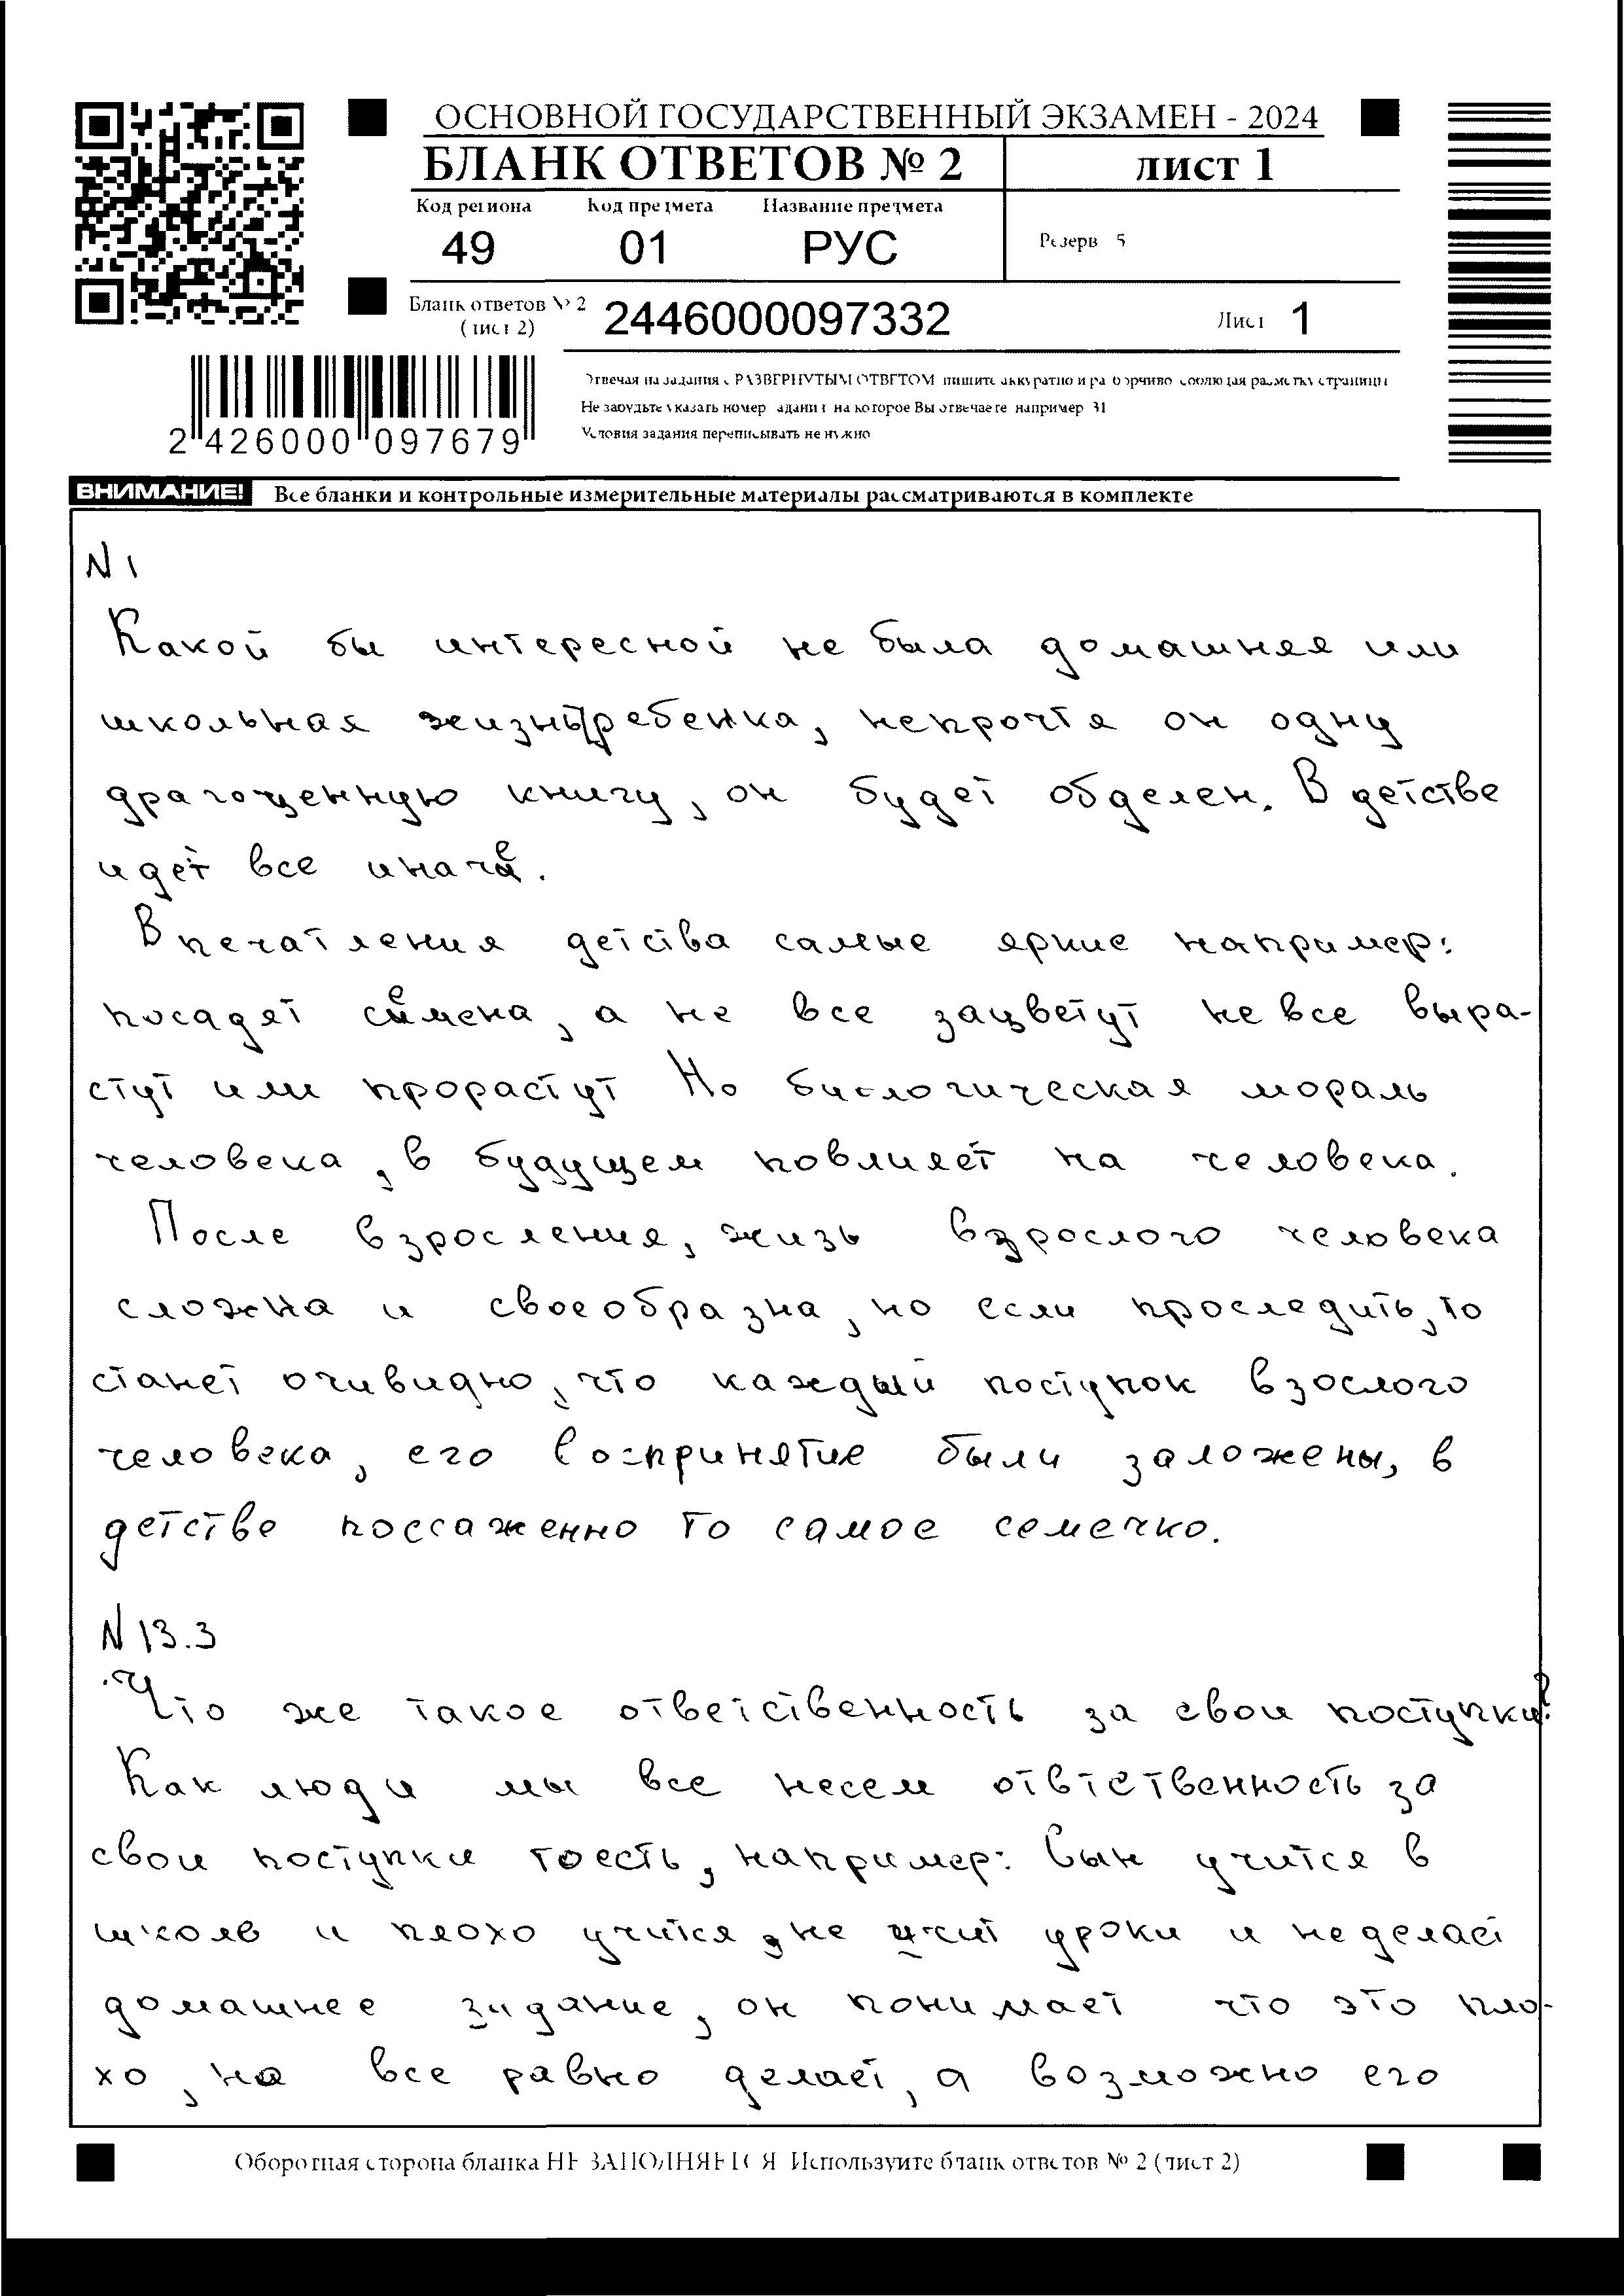 ОСНОВНОЙ ГОСУДАРСТВЕННЫЙ ЭКЗАМЕН - 2024
БЛАНК ОТВЕТОВ № 2 лист 1
Код региона Код предмета Название предмета
49 01 РУС Резерв 5
Бланк ответов № 2
(лист 2) 2446000097332 Лист 1
Отвечая на задания с РАЗВЕРНУТЫМ ОТВЕТОМ пишите аккуратно и разборчиво соблюдая разметку страницы
Не забудьте указать номер задания на которое Вы отвечаете например 31
Условия задания переписывать не нужно
2 426000 097679
ВНИМАНИЕ! Все бланки и контрольные измерительные материалы рассматриваются в комплекте
N 1
Какой бы интересной не была домашняя или
школьная жизнь ребенка, непрочтя он одну
драгоценную книгу, он будет обделен. В детстве
идет все иначе.
Впечатления детства самые яркие например:
посадят семена, а не все зацветут не все выра-
стут или прорастут Но биологическая мораль
человека, в будущем повлияет на человека.
После взросления, жизь взрослого человека
сложна и своеобразна, но если проследить, то
станет очивидно, что каждый поступок взослого
человека, его воспринятие были заложены, в
детстве поссаженно то самое семечко.
N 13.3
Что же такое ответственность за свои поступки?
Как люди мы все несем отвтственность за
свои поступки тоесть, например: Сын учится в
школе и плохо учится, не учит уроки и неделает
домашнее задание, он понимает что это пло-
хо, но все равно делает, а возможно его
Оборотная сторона бланка НЕ ЗАПОЛНЯЕТСЯ Используйте бланк ответов № 2 (лист 2)